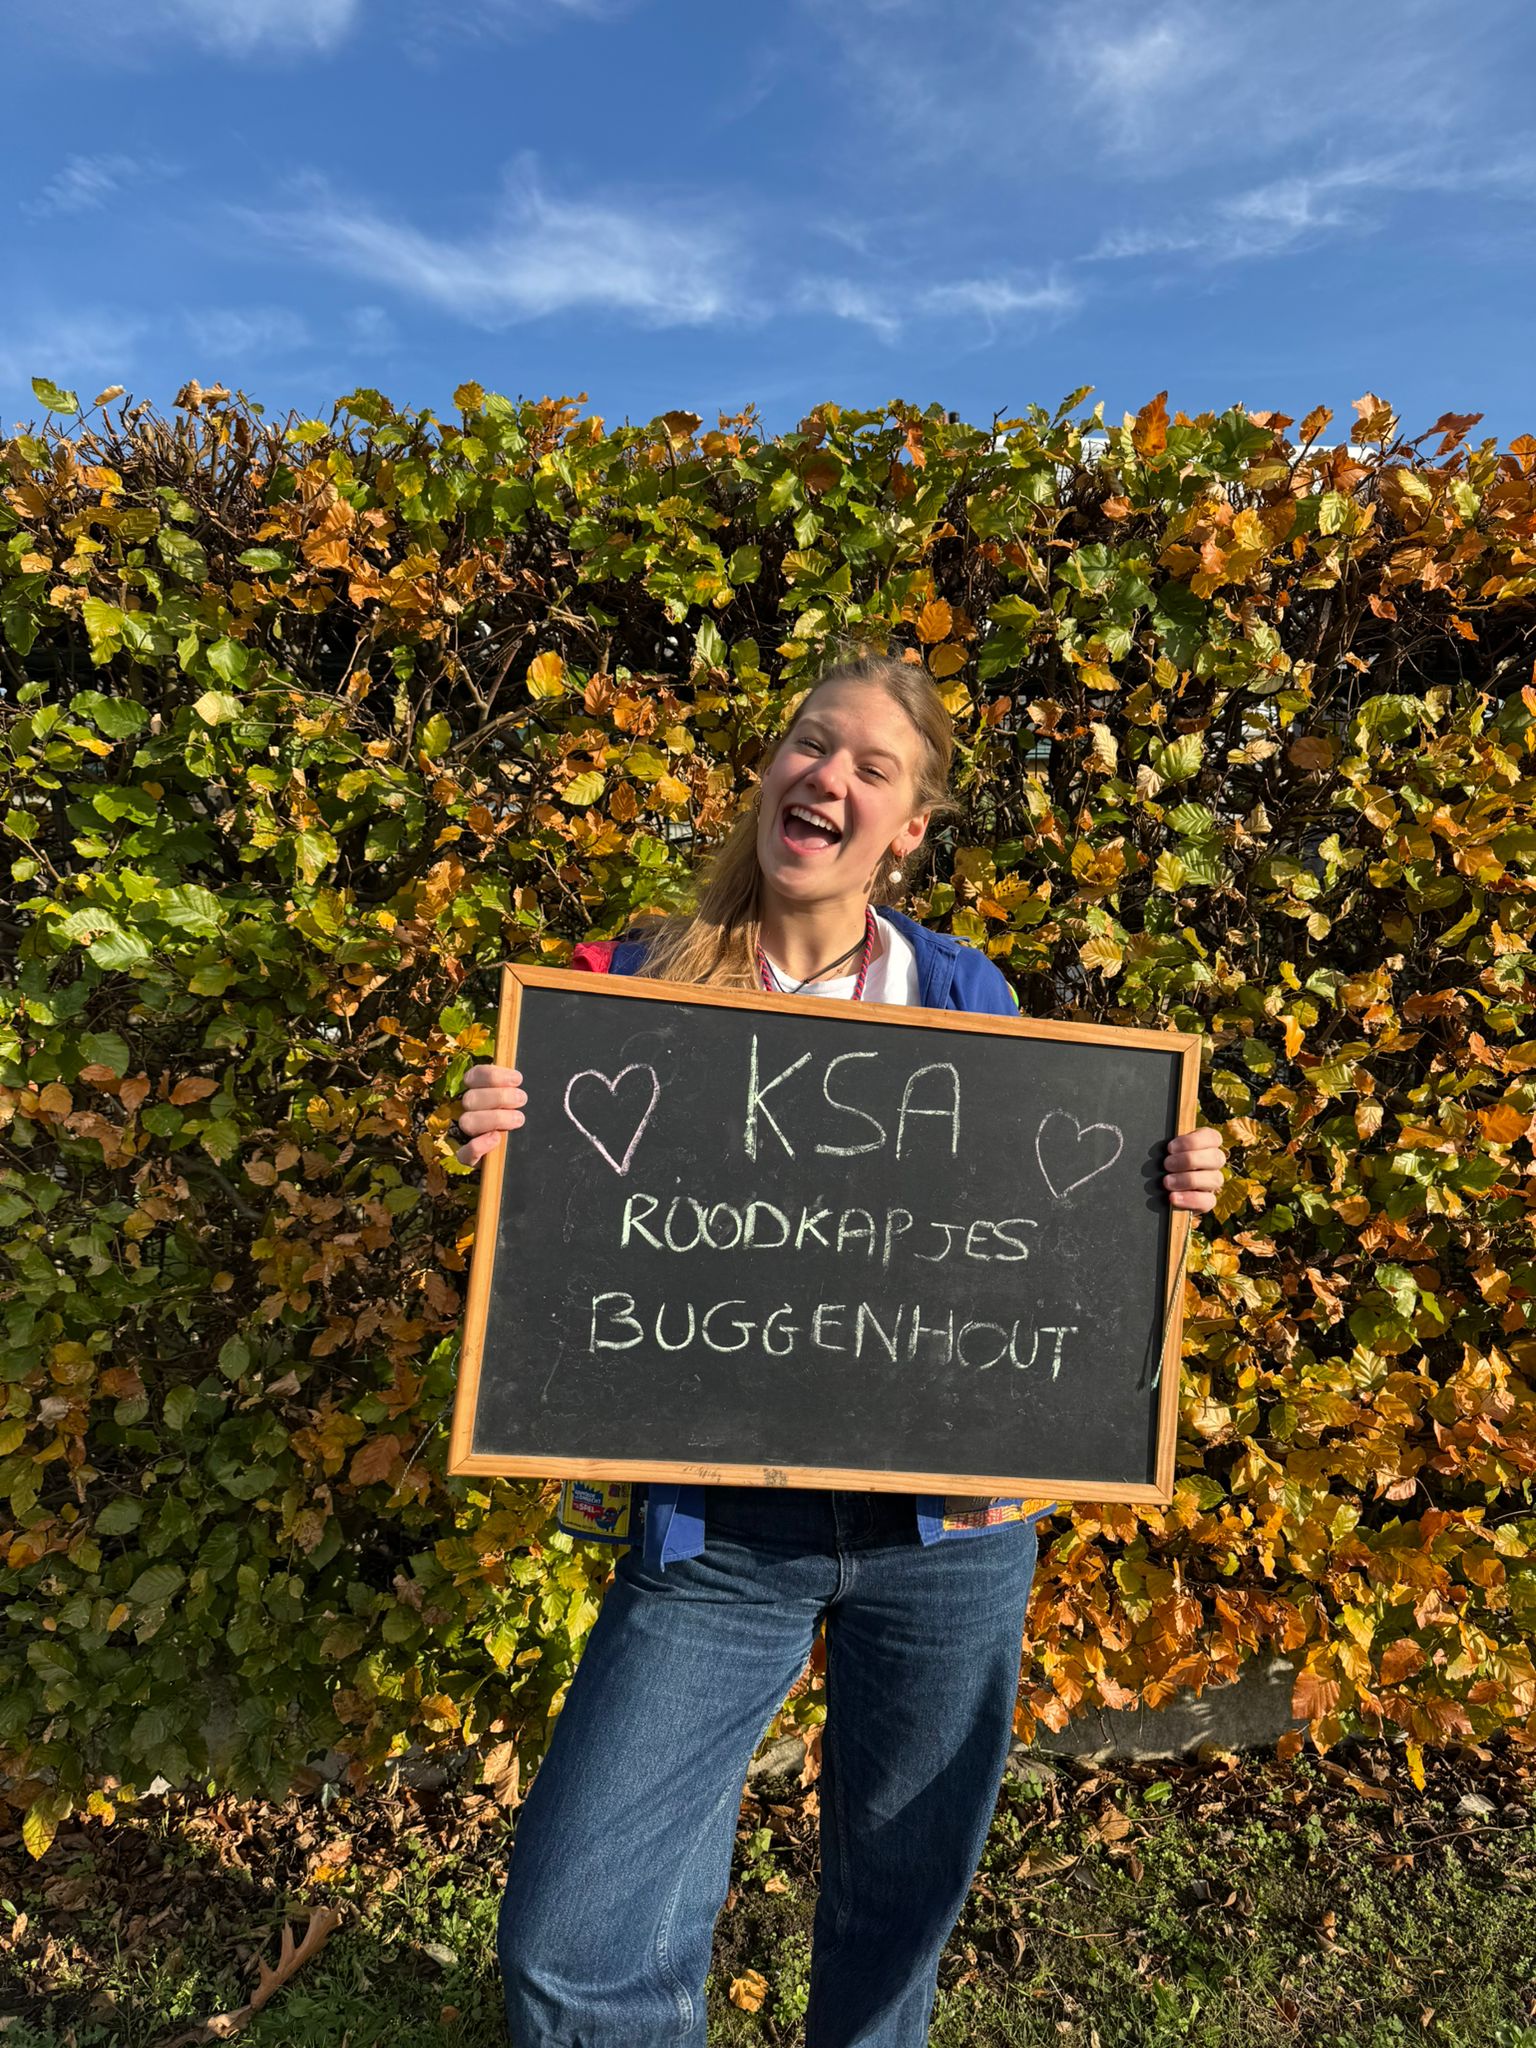 KSA
ROODKAPJES
BUGGENHOUT
SPEL